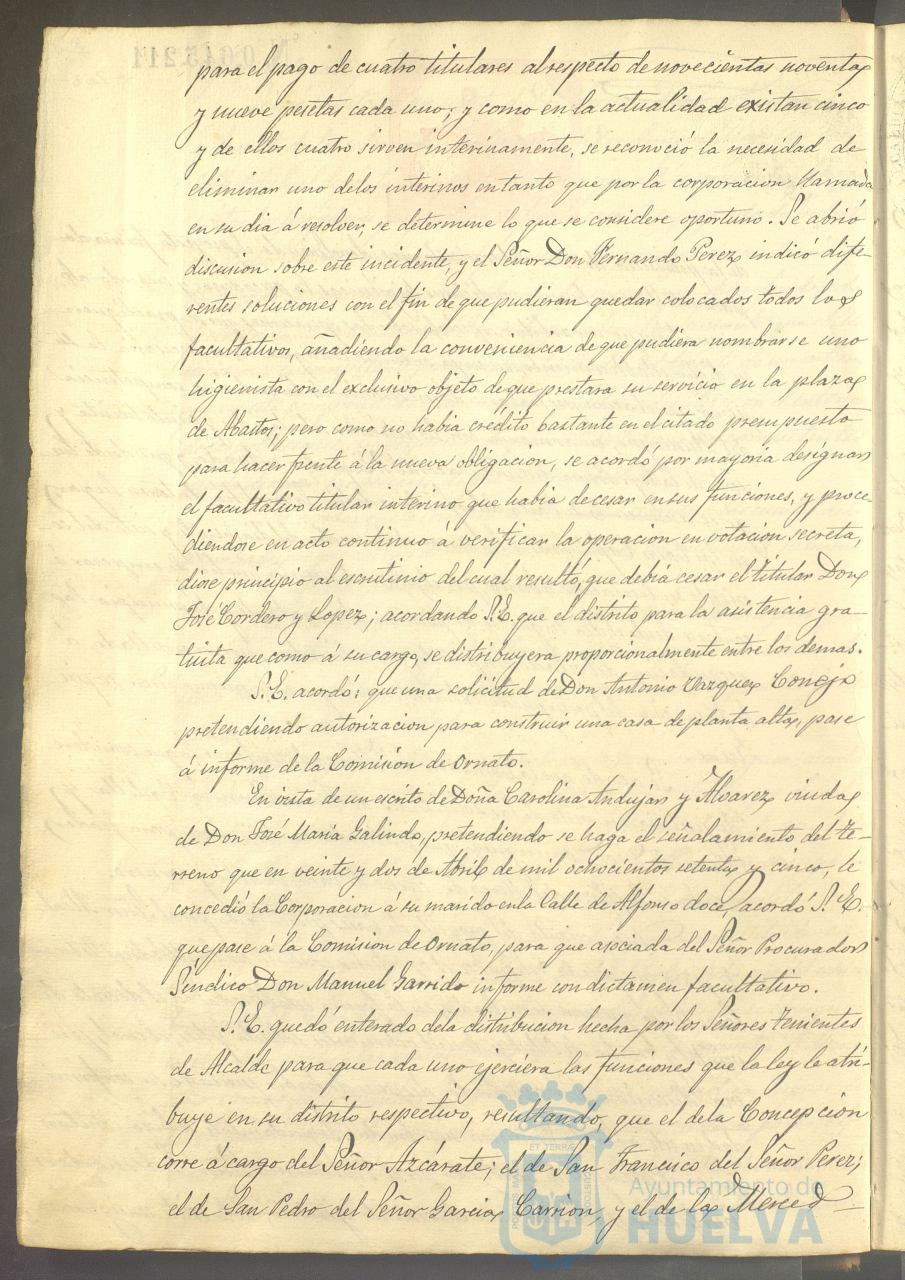 para el pago de cuatro titulares al respecto de novecientas noventa
y nueve pesetas cada uno; y como en la actualidad existan cinco
y de ellos cuatro sirven interinamente, se reconoció la necesidad de
eliminar uno de los interinos en tanto que por la corporacion llamada
en su dia á resolver, se determine lo que se considere oportuno. Se abrió
discusion sobre este incidente, y el Señor Don Fernando Perez indicó dife-
rentes soluciones con el fin de que pudieran quedar colocados todos los
facultativos, añadiendo la conveniencia de que pudiera nombrarse uno
higienista con el exclusivo objeto de que prestara su servicio en la plaza
de Abastos; pero como no habia crédito bastante en el citado presupuesto
para hacer frente á la nueva obligacion, se acordó por mayoria designar
el facultativo titular interino que habia de cesar en sus funciones, y proce-
diendose en acto continuo á verificar la operacion en votacion secreta,
diose principio al escrutinio del cual resultó, que debia cesar el titular Don
José Cordero y Lopez; acordando S.E. que el distrito para la asistencia gra-
tuita que como á su cargo, se distribuyera proporcionalmente entre los demas.
S.E. acordó: que una solicitud de Don Antonio Vazquez Conejo
pretendiendo autorizacion para construir una casa de planta alta, pase
á informe de la Comisión de Ornato.
En vista de un escrito de Doña Carolina Andujar y Álvarez viuda
de Don José Maria Galindo, pretendiendo se haga el señalamiento del te-
rreno que en veinte y dos de Abril de mil ochocientos setenta y cinco, le
concedió la Corporacion á su marido en la Calle de Alfonso doce, acordó S.E.
que pase á la Comision de Ornato, para que asociada del Señor Procurador
Síndico Don Manuel Garrido informe con dictamen facultativo.
S.E. quedó enterado de la distribucion hecha por los Señores Tenientes
de Alcalde para que cada uno ejerciera las funciones que la ley le atri-
buye en su distrito respectivo, resultando, que el de la Concepción
corre á cargo del Señor Azcárate; el de San Francisco del Señor Perez;
el de San Pedro del Señor Garcia Carrion, y el de la Merced
ET TERRAE
Ayuntamiento de
HUELVA